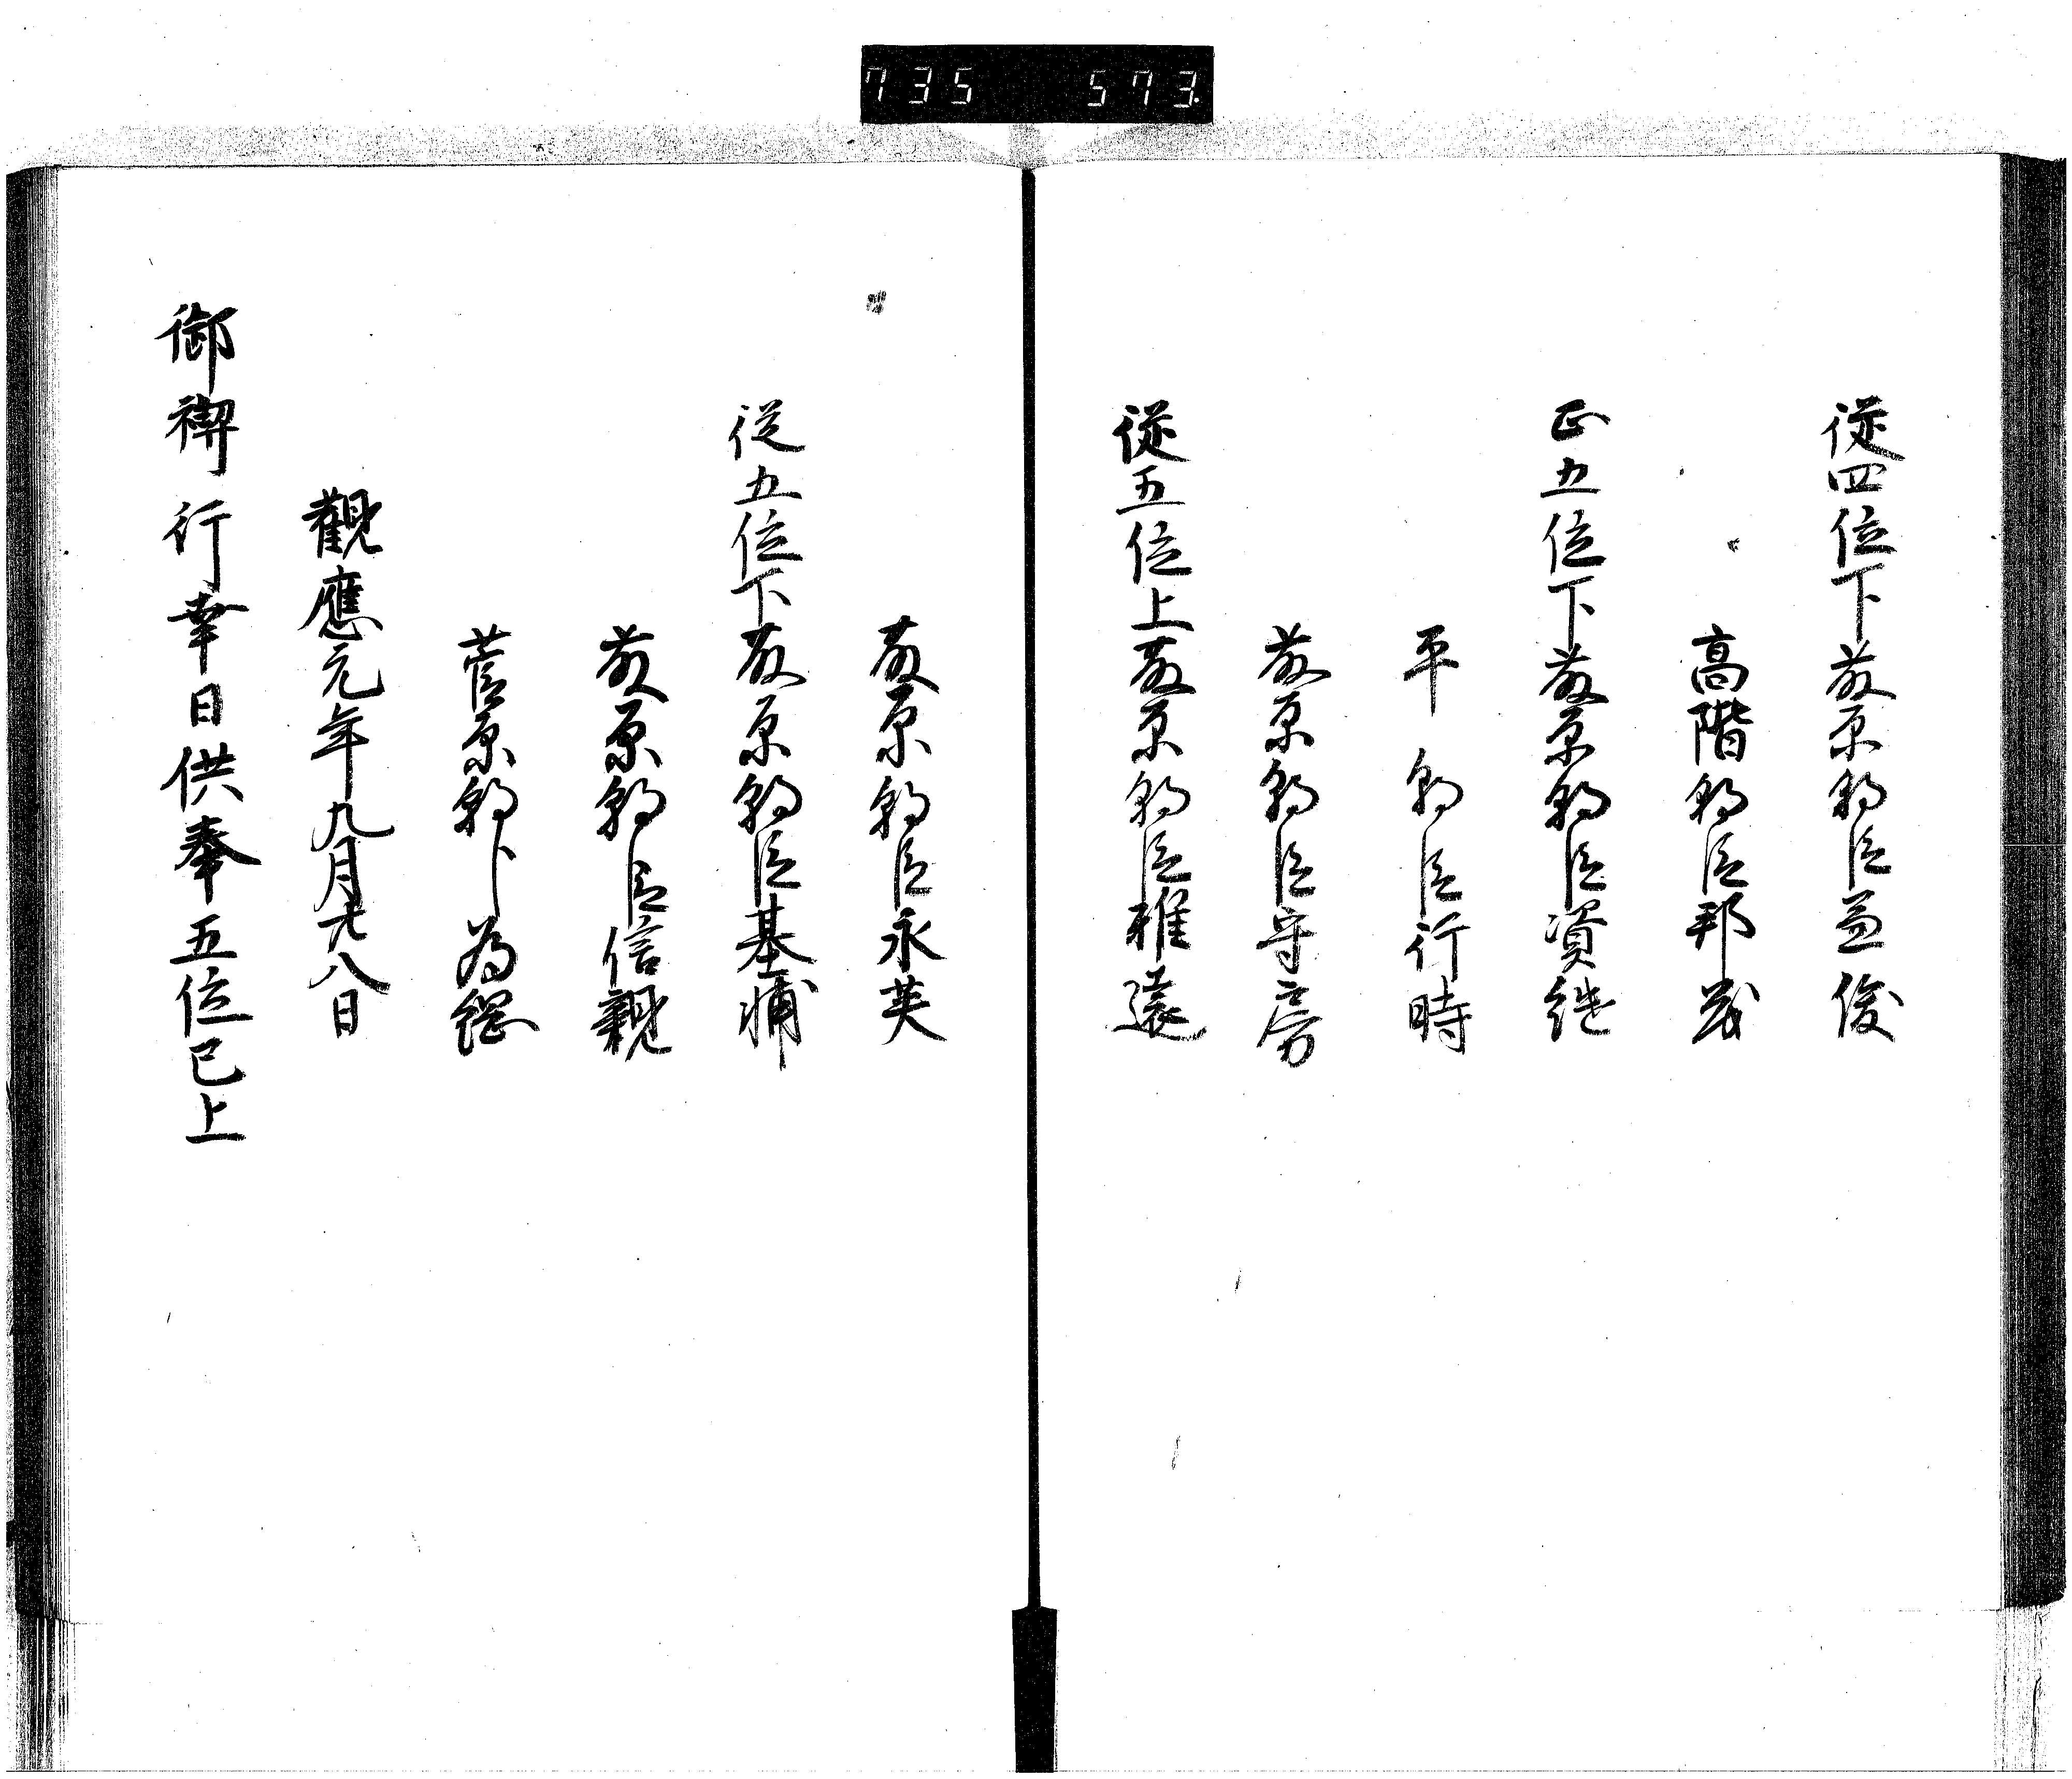 735 573
從四位下藤原朝臣兼俊
高階朝臣邦茂
正五位下藤原朝臣資継
平朝臣行時
藤原朝臣守房
從五位上藤原朝臣雅遠
藤原朝臣永英
従五位下藤原朝臣基輔
藤原朝臣信親
菅原朝臣為綱
觀應元年九月廿八日
御禊行幸日供奉五位已上